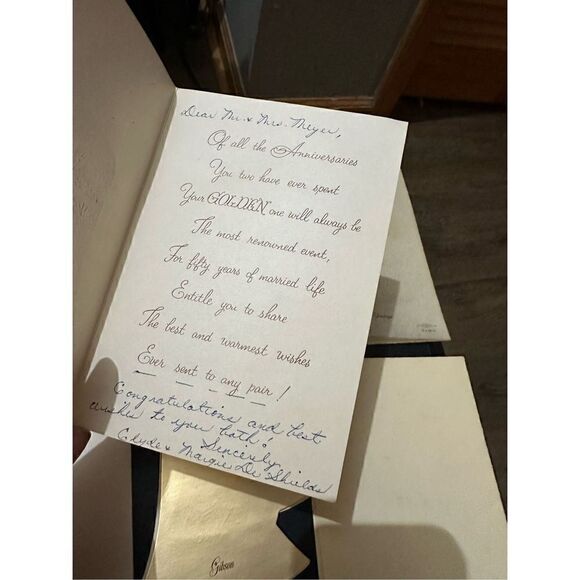 Dear Mr. & Mrs. Meyer,
Of all the Anniversaries
You two have ever spent
Your GOLDEN one will always be
The most renowned event,
For fifty years of married life
Entitle you to share
The best and warmest wishes
Ever sent to any pair!
Congratulations and best
wishes to you both!
Sincerely,
Clyde & Margie De Shields
Gibson